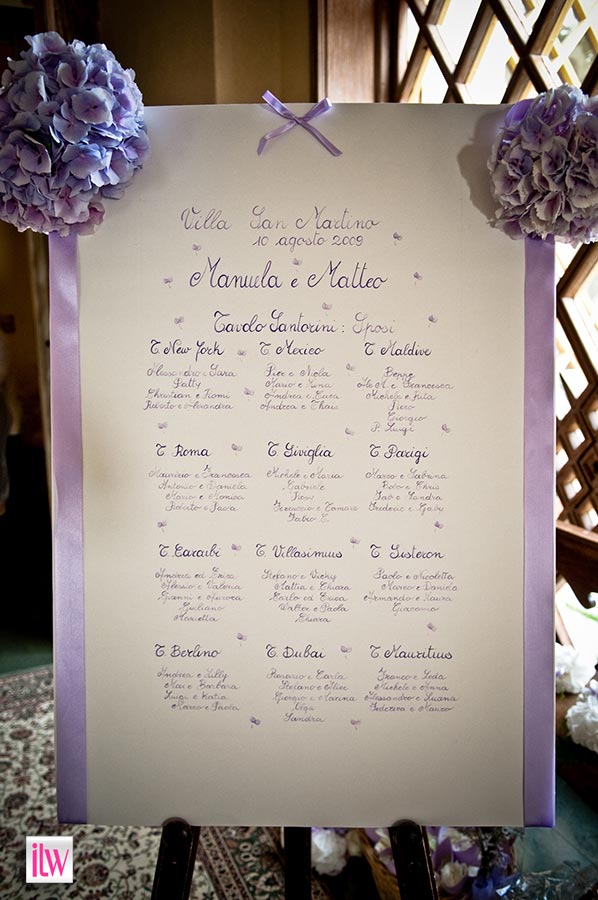 Villa San Martino
10 agosto 2009
Manuela e Matteo
Tavolo Santorini: Sposi
T New York
Alessandro e Sara
Patty
Christian e Romi
Roberto e Alexandra
T Mexico
Pier e Nicla
Mario e Lina
Andrea e Luca
Andrea e Thais
T Maldive
Beppe
M. e Francesca
Michele e Rita
Piero
Giorgio
P. Luigi
T Roma
Maurizio e Francesca
Antonio e Daniela
Mario e Monica
Roberto e Luca
T Siviglia
Michele e Maria
Gabriele
Rosy
e Tamara
Fabio E.
T Parigi
Marco e Sabrina
Bobo e Chris
Gab e Sandra
Frederic e Gaby
T Caraibi
Andrea ed Erica
Alessio e Valeria
Gianni e Aurora
Giuliano
Marietta
T Villasimius
Stefano e Vichy
Mattia e Chiara
Carlo ed Erica
Walter e Paola
Chiara
T Sisteron
Paolo e Nicoletta
Marco e Daniela
Armando e Laura
Giacomo
T Berlino
Andrea e Lilly
Max e Barbara
Luigi e Katia
Marco e Paola
T Dubai
Rosario e Carla
Stefano e Alice
Giorgio e Marina
Olga
Sandra
T Mauritius
Franco e Leda
Michele e Anna
Alessandro e Luana
Federica e Marco
ilw